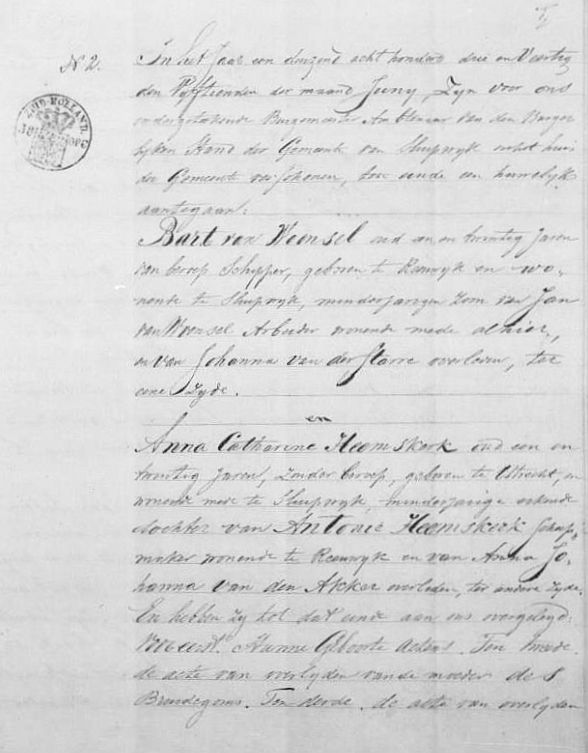 N 2.
In het Jaar een duizend acht honderd drie en Veertig
den Vyftienden der maand Juny, Zyn voor ons
ondergetekende Burgemeester Ambtenaar van den Burger
lyken Stand der Gemeente van Sluipwyk in het huis
der Gemeente verschenen, ten einde een huwelyk
aantegaan:
Bart van Wensel oud een en twintig Jaren
van beroep Schipper, geboren te Reeuwyk en wo-
nende te Sluipwyk, minderjarigen Zoon van Jan
van Wensel Arbeider wonende mede alhier,
en van Johanna van der Starre overleden, ter
eene Zyde.
en
Anna Catharine Heemskerk oud een en
twintig Jaren, Zonder beroep, geboren te Utrecht, en
wonende mede te Sluipwyk, minderjarige erkende
dochter van Antonie Heemskerk Scheeps-
maker wonende te Reeuwyk en van Anna Jo-
hanna van den Akker overleden, ter andere Zyde.
En hebben Zy tot dat einde aan ons overgelegd:
Vooreerst. Hunne Geboorte Actens. Ten tweede.
de acte van overlyden van de moeder des
Bruidegoms. Ten derde. de acte van overlyden
ZUID HOLLAND